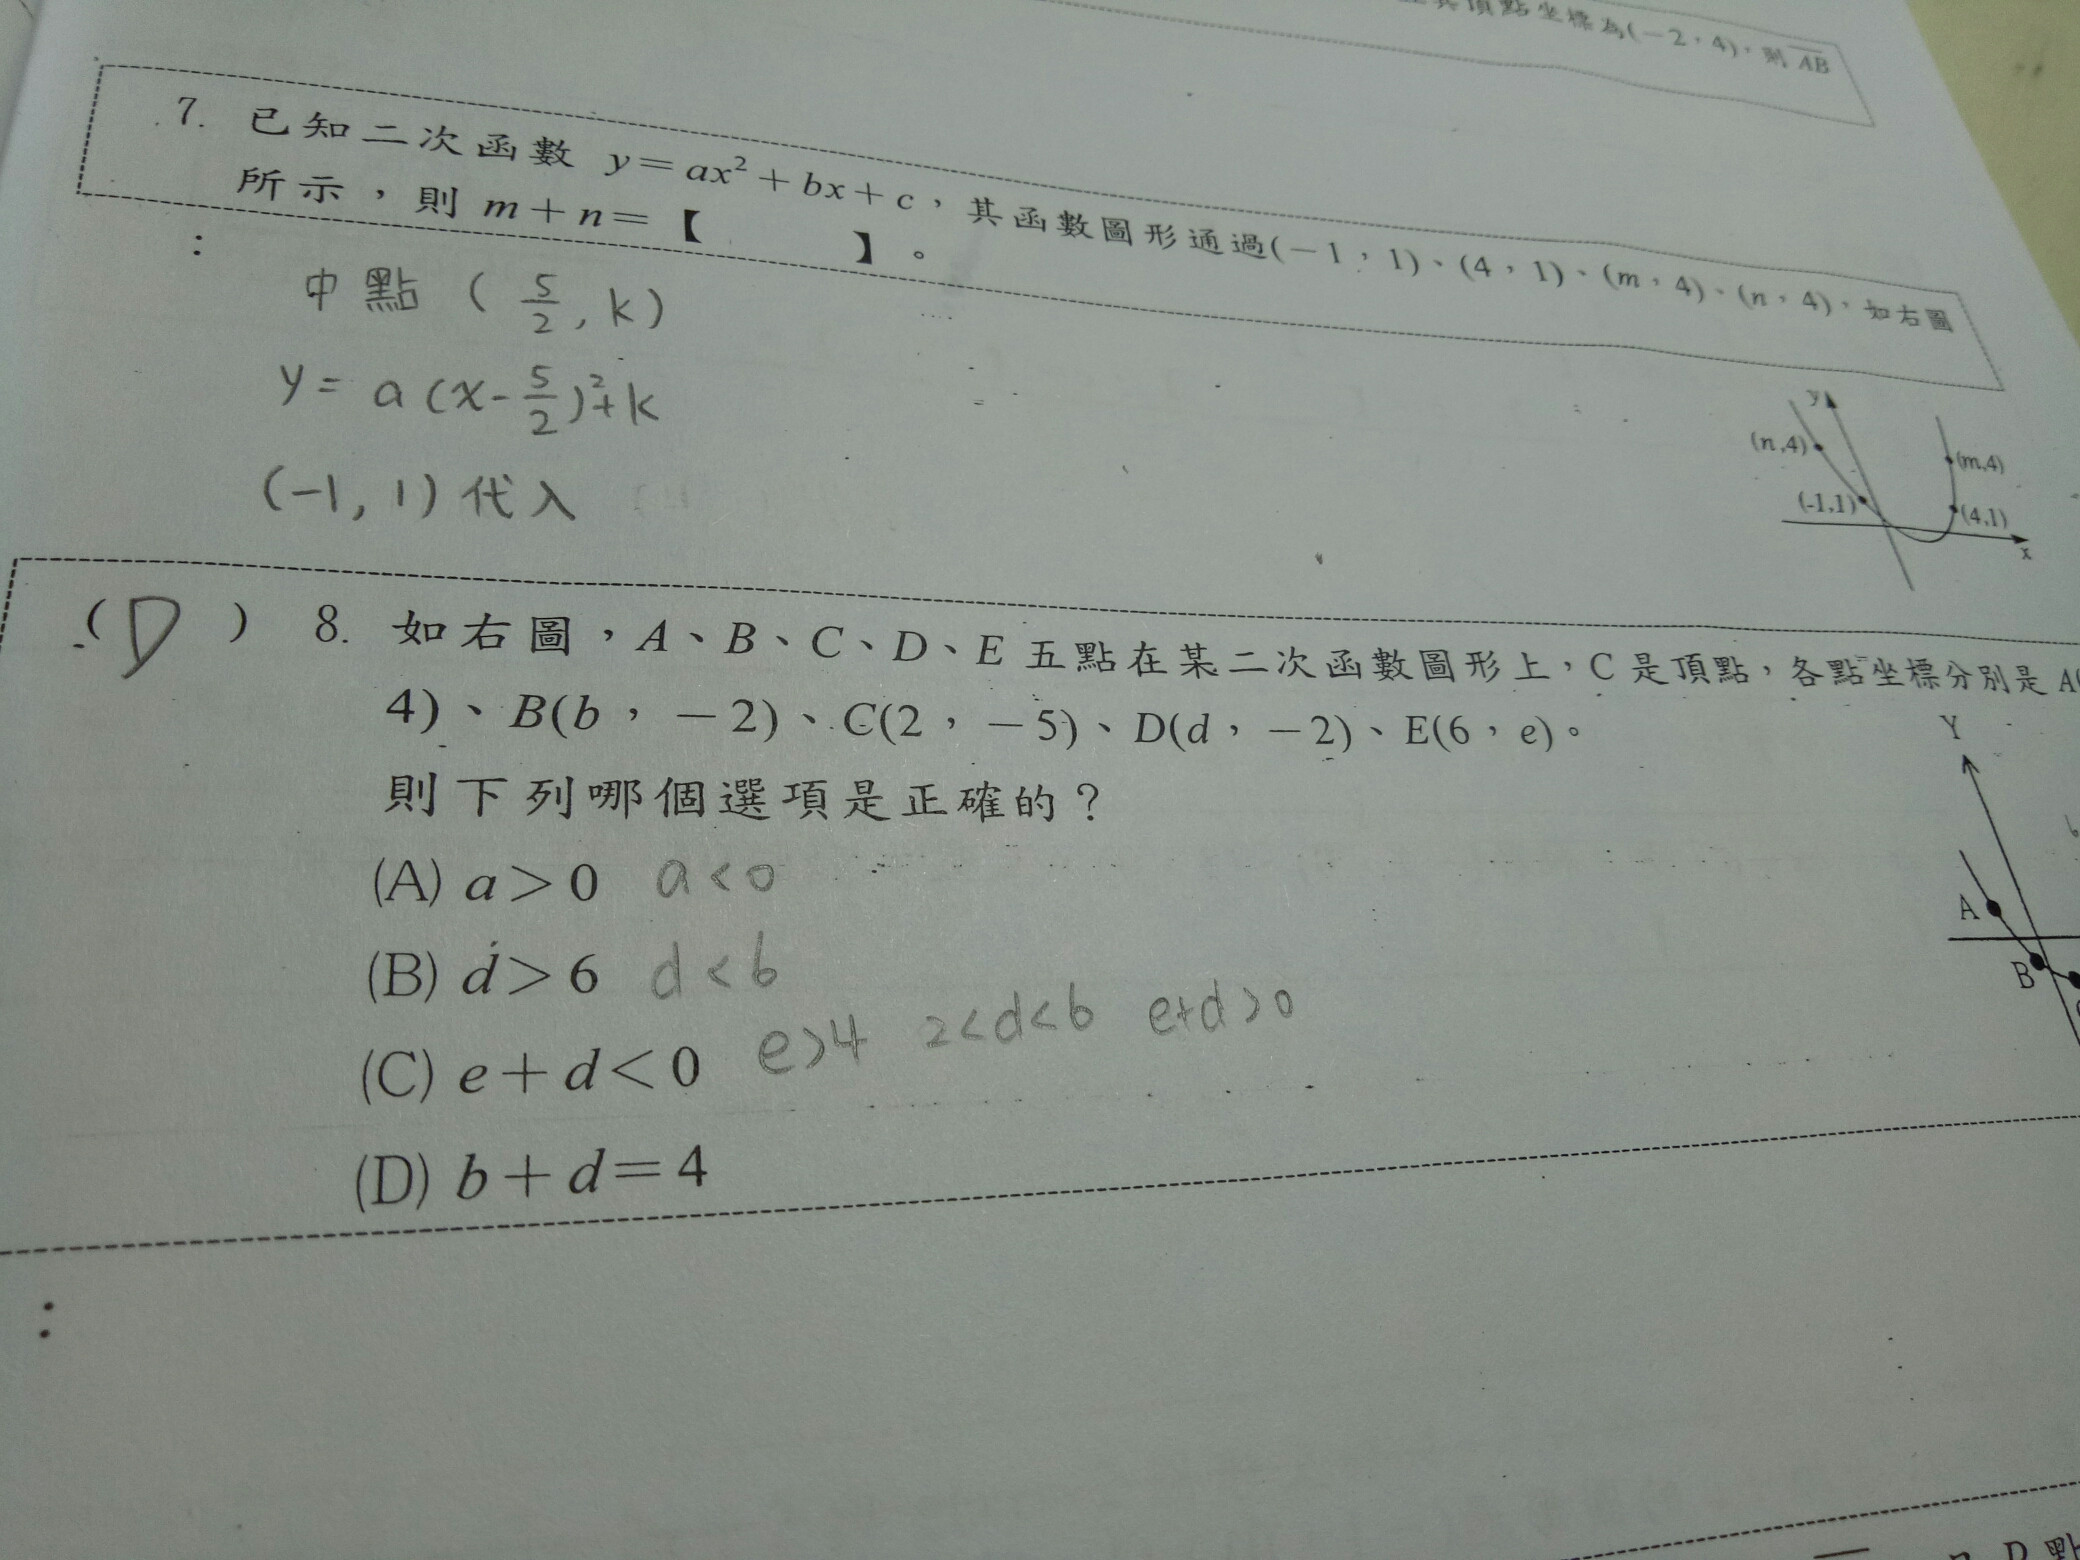 頂點坐標為(-2,4),則AB
7. 已知二次函數 y=ax²+bx+c,其函數圖形通過(-1,1)、(4,1)、(m,4)、(n,4),如右圖
所示,則 m+n=【 】。
:
中點 ( 5/2 , k )
y = a (x- 5/2 )²+k
(-1, 1) 代入
y
(n,4)
(m,4)
(-1,1)
(4,1)
x
( D ) 8. 如右圖,A、B、C、D、E 五點在某二次函數圖形上,C 是頂點,各點坐標分別是 A(
4)、B(b,-2)、C(2,-5)、D(d,-2)、E(6,e)。
則下列哪個選項是正確的?
(A) a>0 a<0
(B) d>6 d<6
(C) e+d<0 e>4 2<d<6 e+d>0
(D) b+d=4
Y
A
B
: